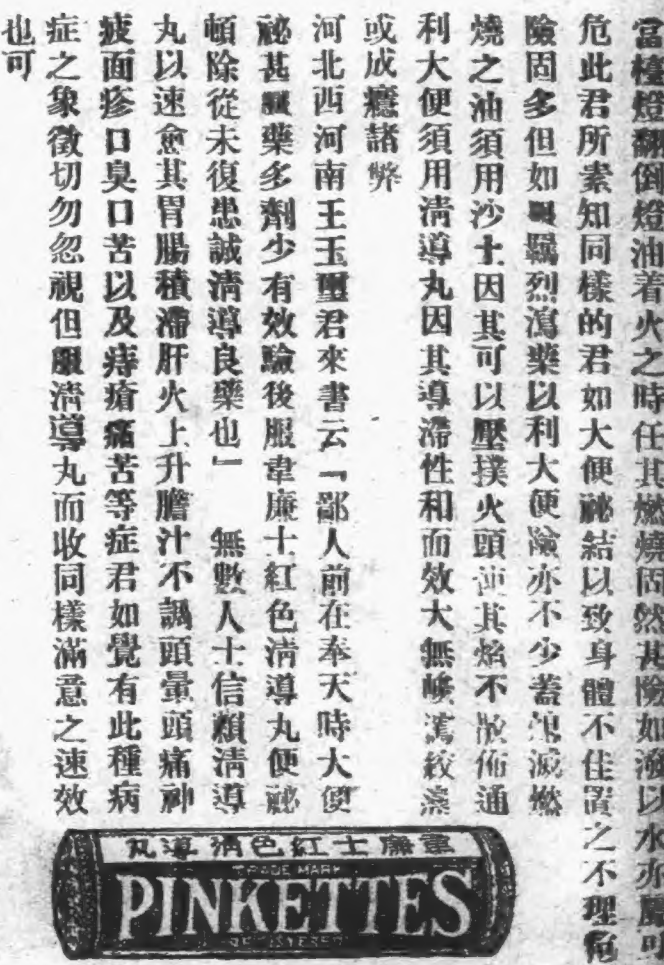 當檯燈翻倒燈油着火之時任其燃燒固然甚險如潑以水亦屬可
危此君所素知同樣的君如大便祕結以致身體不佳置之不理危
險固多但如服驅烈瀉藥以利大便險亦不少蓋滅燃
燒之油須用沙土因其可以壓撲火頭使其焰不散佈通
利大便須用清導丸因其導滯性和而效大無峻瀉絞
或成癮諸弊
河北西河南王玉璽君來書云「鄙人前在奉天時大便
祕甚服藥多劑少有效驗後服韋廉士紅色清導丸便祕
頓除從未復患誠清導良藥也」 無數人士信賴清導
丸以速愈其胃腸積滯肝火上升膽汁不調頭暈頭痛神
疲面疹口臭口苦以及痔瘡痛苦等症君如覺有此種病
症之象徵切勿忽視但服清導丸而收同樣滿意之速效
也可
韋廉士紅色清導丸
TRADE MARK
PINKETTES
REGISTERED